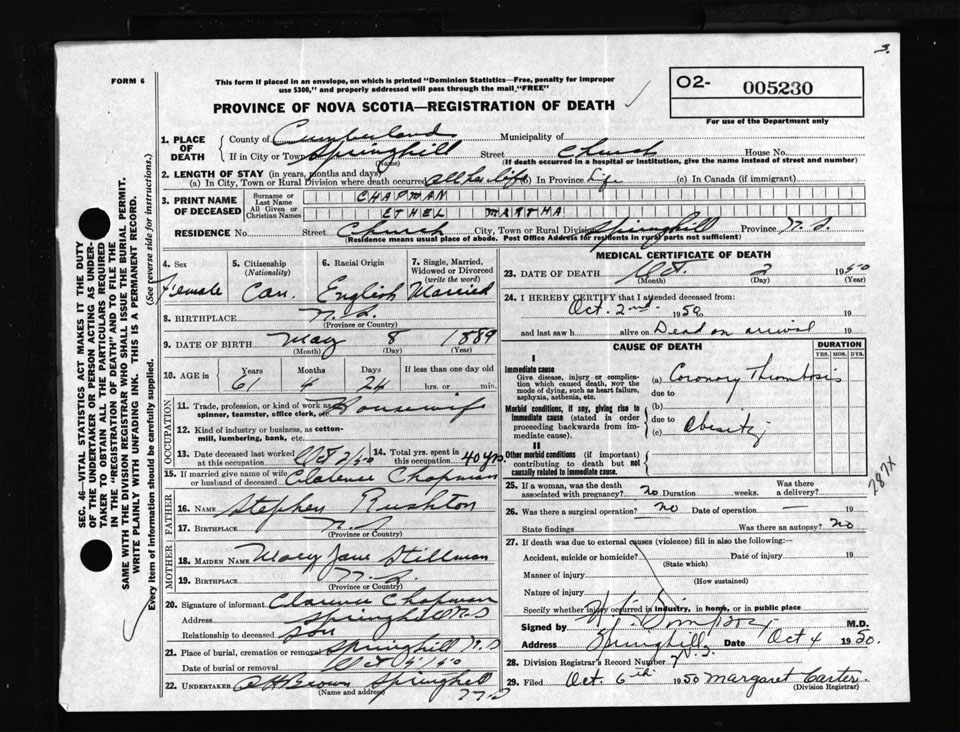 3.
FORM 6
This form if placed in an envelope, on which is printed "Dominion Statistics—Free, penalty for improper
use $300," and properly addressed will pass through the mail "FREE"
O2- 005230
For use of the Department only
PROVINCE OF NOVA SCOTIA—REGISTRATION OF DEATH
SEC. 46—VITAL STATISTICS ACT MAKES IT THE DUTY
OF THE UNDERTAKER OR PERSON ACTING AS UNDER-
TAKER TO OBTAIN ALL THE PARTICULARS REQUIRED
IN THE "REGISTRATION OF DEATH" AND TO FILE THE
SAME WITH THE DIVISION REGISTRAR WHO SHALL ISSUE THE BURIAL PERMIT.
WRITE PLAINLY WITH UNFADING INK. THIS IS A PERMANENT RECORD.
Every item of information should be carefully supplied. (See reverse side for instructions.)
1. PLACE OF DEATH County of Cumberland Municipality of
If in City or Town Springhill Street Church House No.
(Name) (If death occurred in a hospital or institution, give the name instead of street and number)
2. LENGTH OF STAY (in years, months and days)
(a) In City, Town or Rural Division where death occurred All her life (b) In Province Life (c) In Canada (if immigrant)
3. PRINT NAME OF DECEASED Surname or Last Name CHAPMAN
All Given or Christian Names ETHEL MARTHA
RESIDENCE No. Street Church City, Town or Rural Division Springhill Province N.S.
(Residence means usual place of abode. Post Office Address for residents in rural parts not sufficient)
4. Sex Female
5. Citizenship (Nationality) Can.
6. Racial Origin English
7. Single, Married, Widowed or Divorced (write the word) Married
8. BIRTHPLACE N.S.
(Province or Country)
9. DATE OF BIRTH May 8 1889
(Month) (Day) (Year)
10. AGE in Years 61 Months 4 Days 24 If less than one day old
hrs. or min.
OCCUPATION
11. Trade, profession, or kind of work as spinner, teamster, office clerk, etc. Housewife
12. Kind of industry or business, as cotton-mill, lumbering, bank, etc.
13. Date deceased last worked at this occupation Oct 2/50 14. Total yrs. spent in this occupation 40 yrs
15. If married give name of wife or husband of deceased Clarence Chapman
FATHER
16. NAME Stephen Rushton
17. BIRTHPLACE N.S.
(Province or Country)
MOTHER
18. MAIDEN NAME Mary Jane Stillman
19. BIRTHPLACE N.S.
(Province or Country)
20. Signature of informant Clarence Chapman
Address Springhill N.S
Relationship to deceased Son
21. Place of burial, cremation or removal Springhill N.S
Date of burial or removal Oct 5/50
22. UNDERTAKER Brown Springhill
(Name and address) N.S
MEDICAL CERTIFICATE OF DEATH
23. DATE OF DEATH Oct. 2 1950
(Month) (Day) (Year)
24. I HEREBY CERTIFY that I attended deceased from:
Oct. 2nd 1950 19
and last saw h alive on Dead on arrival 19
CAUSE OF DEATH DURATION
YRS. MOS. DYS.
I
Immediate cause
Give disease, injury or complication which caused death, NOT the mode of dying, such as heart failure, asphyxia, asthenia, etc.
(a) Coronary Thrombosis
due to
Morbid conditions, if any, giving rise to immediate cause (stated in order proceeding backwards from immediate cause).
(b)
due to
(c) Obesity
II
Other morbid conditions (if important) contributing to death but not causally related to immediate cause.
287X
25. If a woman, was the death associated with pregnancy? No Duration weeks. Was there a delivery?
26. Was there a surgical operation? No Date of operation — 19
State findings Was there an autopsy? No
27. If death was due to external causes (violence) fill in also the following:—
Accident, suicide or homicide? Date of injury 19
(State which)
Manner of injury
(How sustained)
Nature of injury
Specify whether injury occurred in industry, in home, or in public place
Signed by M.D.
Address Springhill, N.S. Date Oct 4 1950.
28. Division Registrar's Record Number
29. Filed Oct. 6th 1950 Margaret Carter.
(Division Registrar)